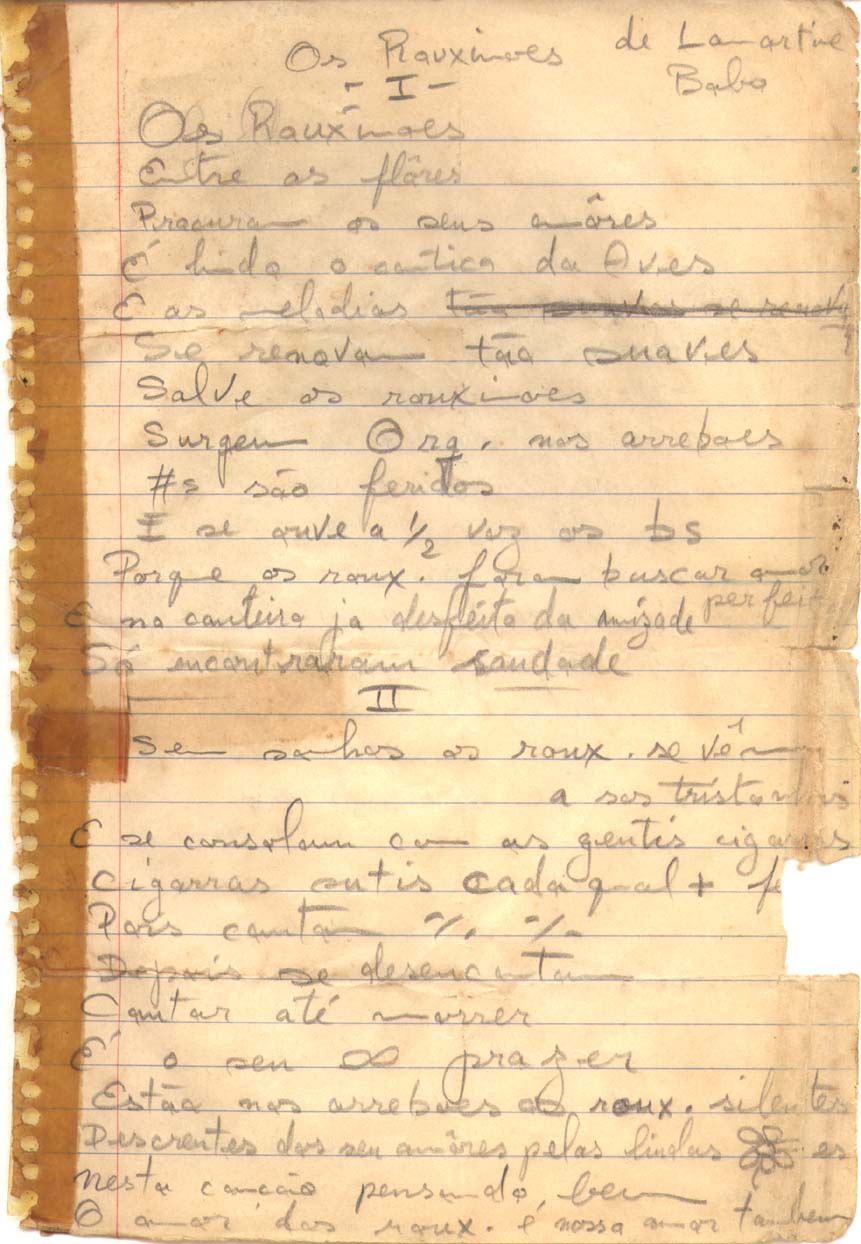 Os Rauximoes de Lamartine
Babo
- I -
Os Rauximoes
Entre as flôres
Procuram os seus amôres
É lindo o cantico da Aves
E as melodias tão suaves se renova
Se renovam tão suaves
Salve os rouximoes
Surgem Org. nos arreboes
#s são feridos
E se ouve a 1/2 voz os bs
Porque os roux. foram buscar amor
perfeit
E no canteiro ja desfeito da amizade
Só encontraram saudade
II
Sem sonhos os roux. se vêm
a sos tristonhos
E se consolam com as gentis cigarras
Cigarras sutis cada qual +
Pois cantam ·/. ·/.
Depois se desencantam
Cantar até morrer
É o seu ∞ prazer
Estão nos arreboes os roux. silentes
Descrentes dos seu amôres pelas lindas es
nesta canção pensando bem
O amor dos roux. é nosso amor tambem